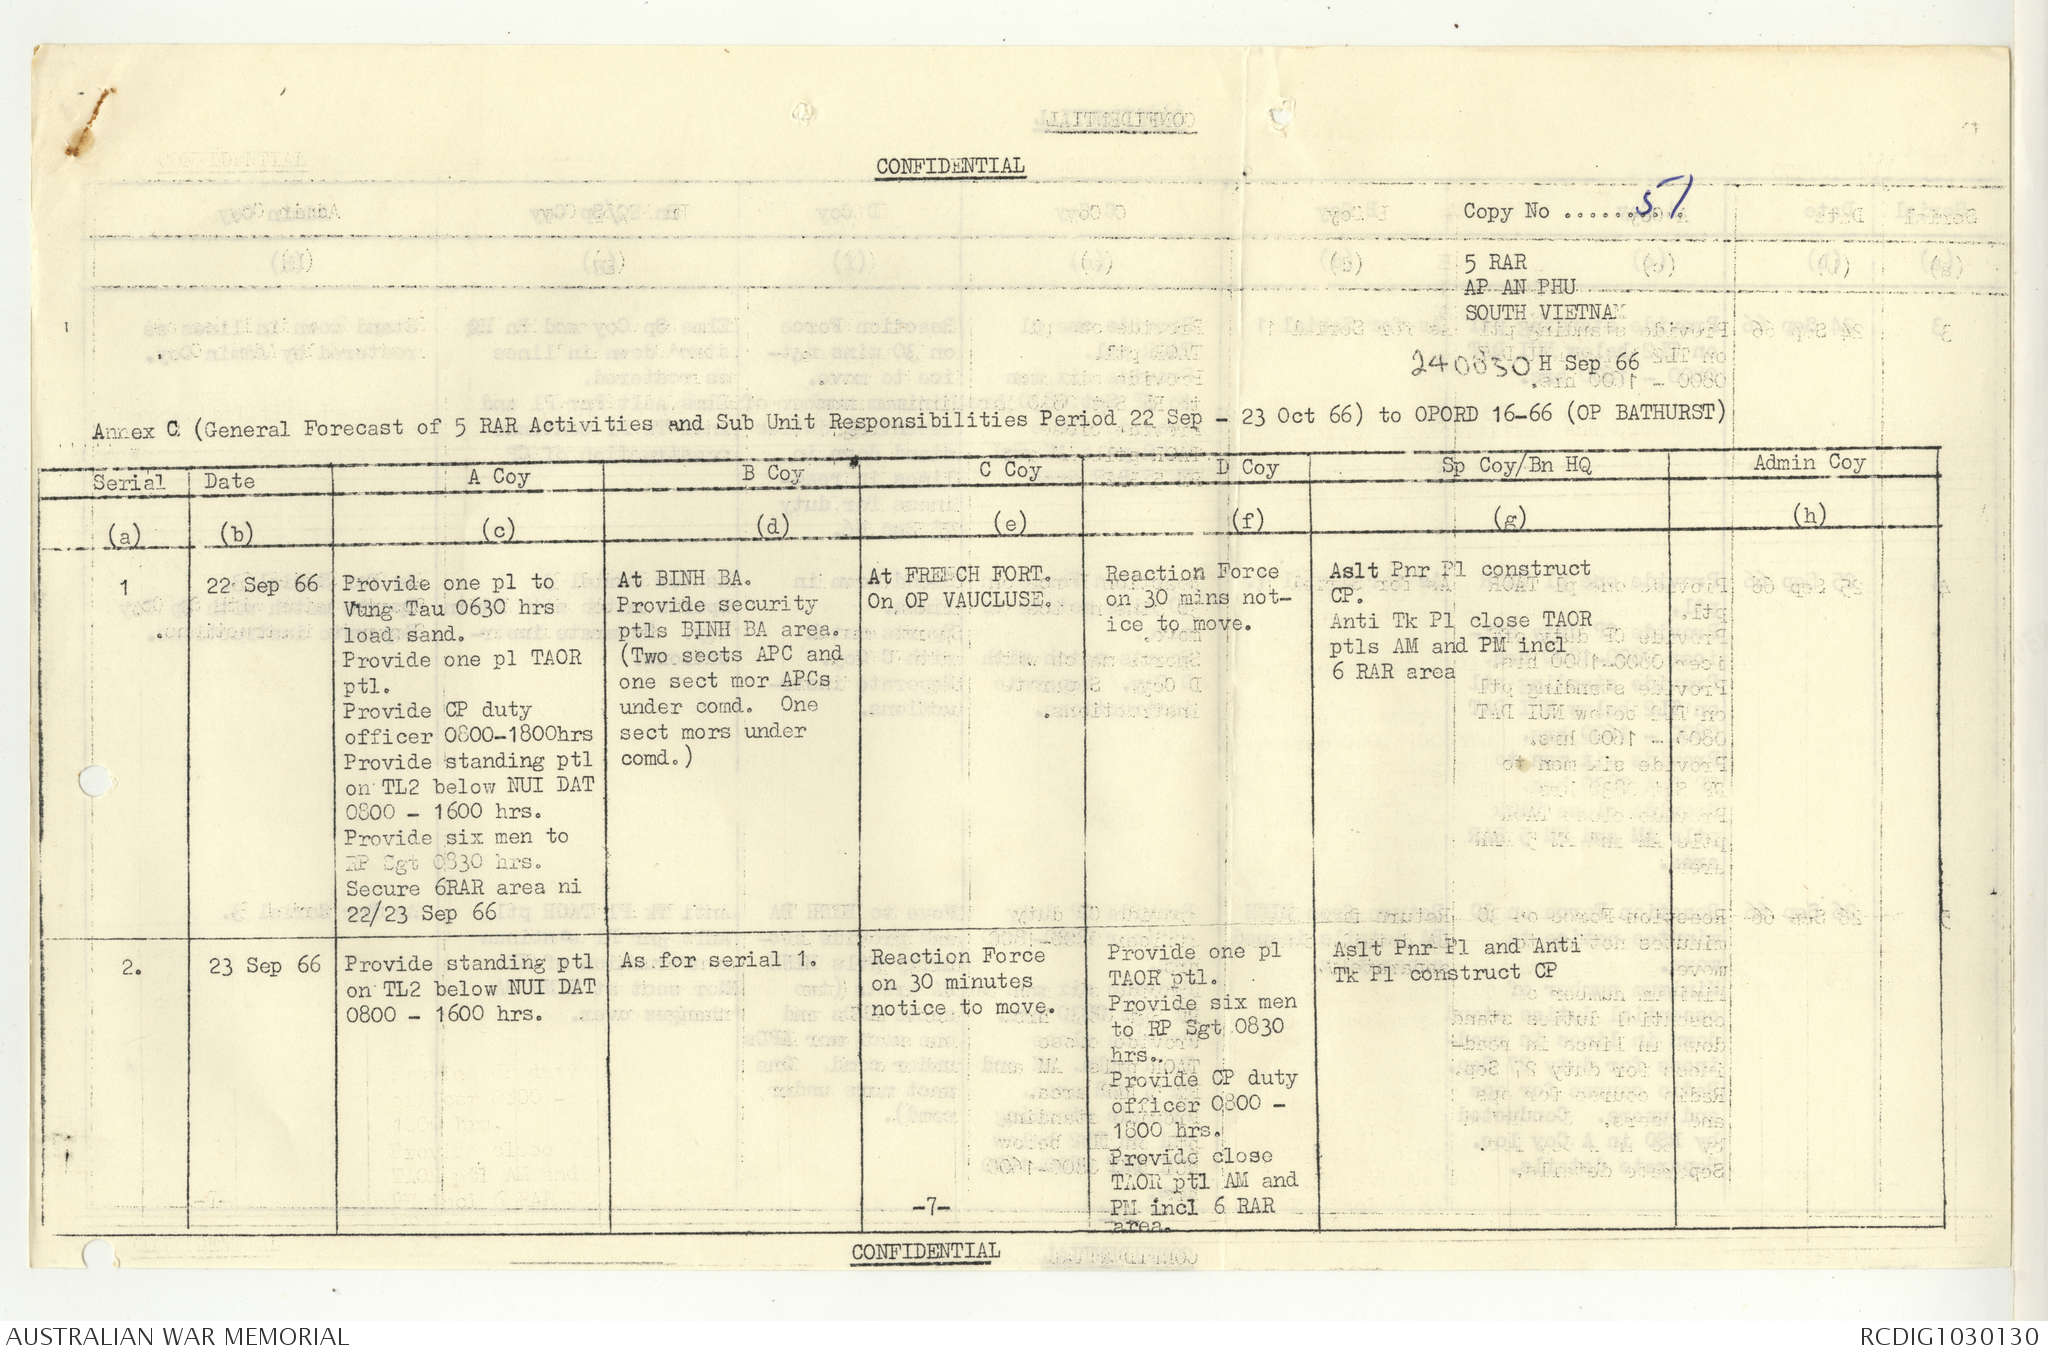 CONFIDENTIAL
Copy No .......... 51
5 RAR
AP AN PHU
SOUTH VIETNAM
240830 H Sep 66
Annex C (General Forecast of 5 RAR Activities and Sub Unit Responsibilities Period 22 Sep - 23 Oct 66) to OPORD 16-66 (OP BATHURST)
Serial Date A Coy B Coy C Coy D Coy Sp Coy/Bn HQ Admin Coy
(a) (b) (c) (d) (e) (f) (g) (h)
1
22 Sep 66
Provide one pl to
Vung Tau 0630 hrs
load sand.
Provide one pl TAOR
ptl.
Provide CP duty
officer 0800-1800hrs
Provide standing ptl
on TL2 below NUI DAT
0800 - 1600 hrs.
Provide six men to
RP Sgt 0830 hrs.
Secure 6RAR area ni
22/23 Sep 66
At BINH BA.
Provide security
ptls BINH BA area.
(Two sects APC and
one sect mor APCs
under comd. One
sect mors under
comd.)
At FRENCH FORT.
On OP VAUCLUSE.
Reaction Force
on 30 mins not-
ice to move.
Aslt Pnr Pl construct
CP.
Anti Tk Pl close TAOR
ptls AM and PM incl
6 RAR area
2.
23 Sep 66
Provide standing ptl
on TL2 below NUI DAT
0800 - 1600 hrs.
As for serial 1.
Reaction Force
on 30 minutes
notice to move.
Provide one pl
TAOR ptl.
Provide six men
to RP Sgt 0830
hrs.
Provide CP duty
officer 0800 -
1800 hrs.
Provide close
TAOR ptl AM and
PM incl 6 RAR
area.
Aslt Pnr Pl and Anti
Tk Pl construct CP
-7-
CONFIDENTIAL
AUSTRALIAN WAR MEMORIAL
RCDIG1030130